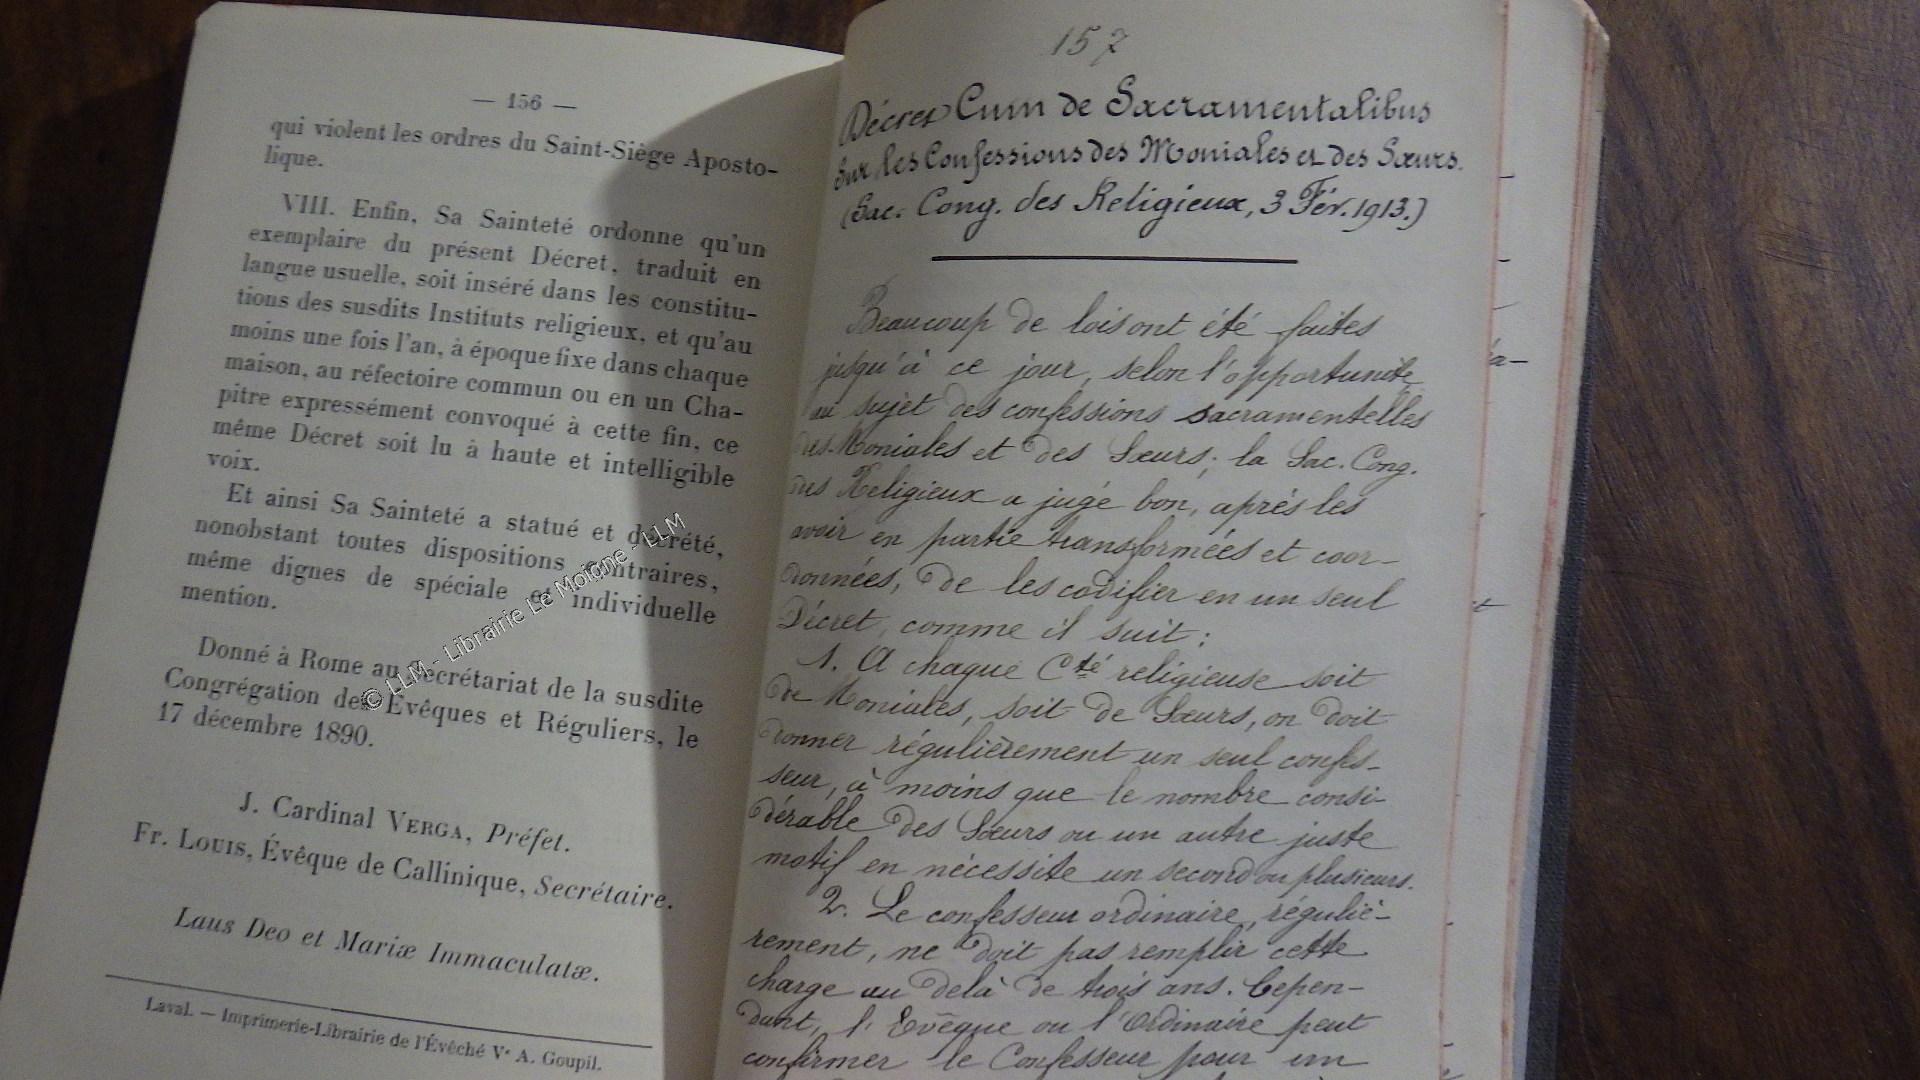 — 156 —
qui violent les ordres du Saint-Siège Aposto-
lique.
VIII. Enfin, Sa Sainteté ordonne qu'un
exemplaire du présent Décret, traduit en
langue usuelle, soit inséré dans les constitu-
tions des susdits Instituts religieux, et qu'au
moins une fois l'an, à époque fixe dans chaque
maison, au réfectoire commun ou en un Cha-
pitre expressément convoqué à cette fin, ce
même Décret soit lu à haute et intelligible
voix.
Et ainsi Sa Sainteté a statué et décrété,
nonobstant toutes dispositions contraires,
même dignes de spéciale et individuelle
mention.
Donné à Rome au Secrétariat de la susdite
Congrégation des Évêques et Réguliers, le
17 décembre 1890.
J. Cardinal VERGA, Préfet.
Fr. LOUIS, Évêque de Callinique, Secrétaire.
Laus Deo et Mariæ Immaculatæ.
Laval. — Imprimerie-Librairie de l'Évêché Ve A. Goupil.
© LLM - Librairie Le Moigne - LLM
157
Décret Cum de Sacramentalibus
Sur les Confessions des Moniales et des Sœurs.
(Sac. Cong. des Religieux, 3 Fév. 1913.)
Beaucoup de lois ont été faites
jusqu'à ce jour, selon l'opportunité,
au sujet des confessions sacramentelles
des Moniales et des Sœurs; la Sac. Cong.
des Religieux a jugé bon, après les
avoir en partie transformées et coor-
données, de les codifier en un seul
Décret, comme il suit:
1. A chaque Cté religieuse soit
de Moniales, soit de Sœurs, on doit
donner régulièrement un seul confes-
seur, à moins que le nombre consi-
dérable des Sœurs ou un autre juste
motif en nécessite un second ou plusieurs.
2. Le confesseur ordinaire, réguliè-
rement, ne doit pas remplir cette
charge au delà de trois ans. Cepen-
dant, l'Evêque ou l'Ordinaire peut
confirmer le Confesseur pour un